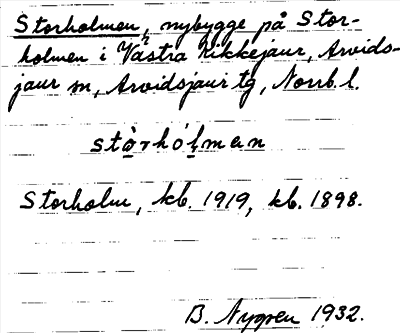 Storholmen, nybygge på Stor-
holmen i Västra Kikkejaur, Arvids-
jaur sn, Arvidsjaur tg, Norrb. l.
stòrhólmen
Storholm, kb. 1919, kb. 1898.
B. Nygren 1932.